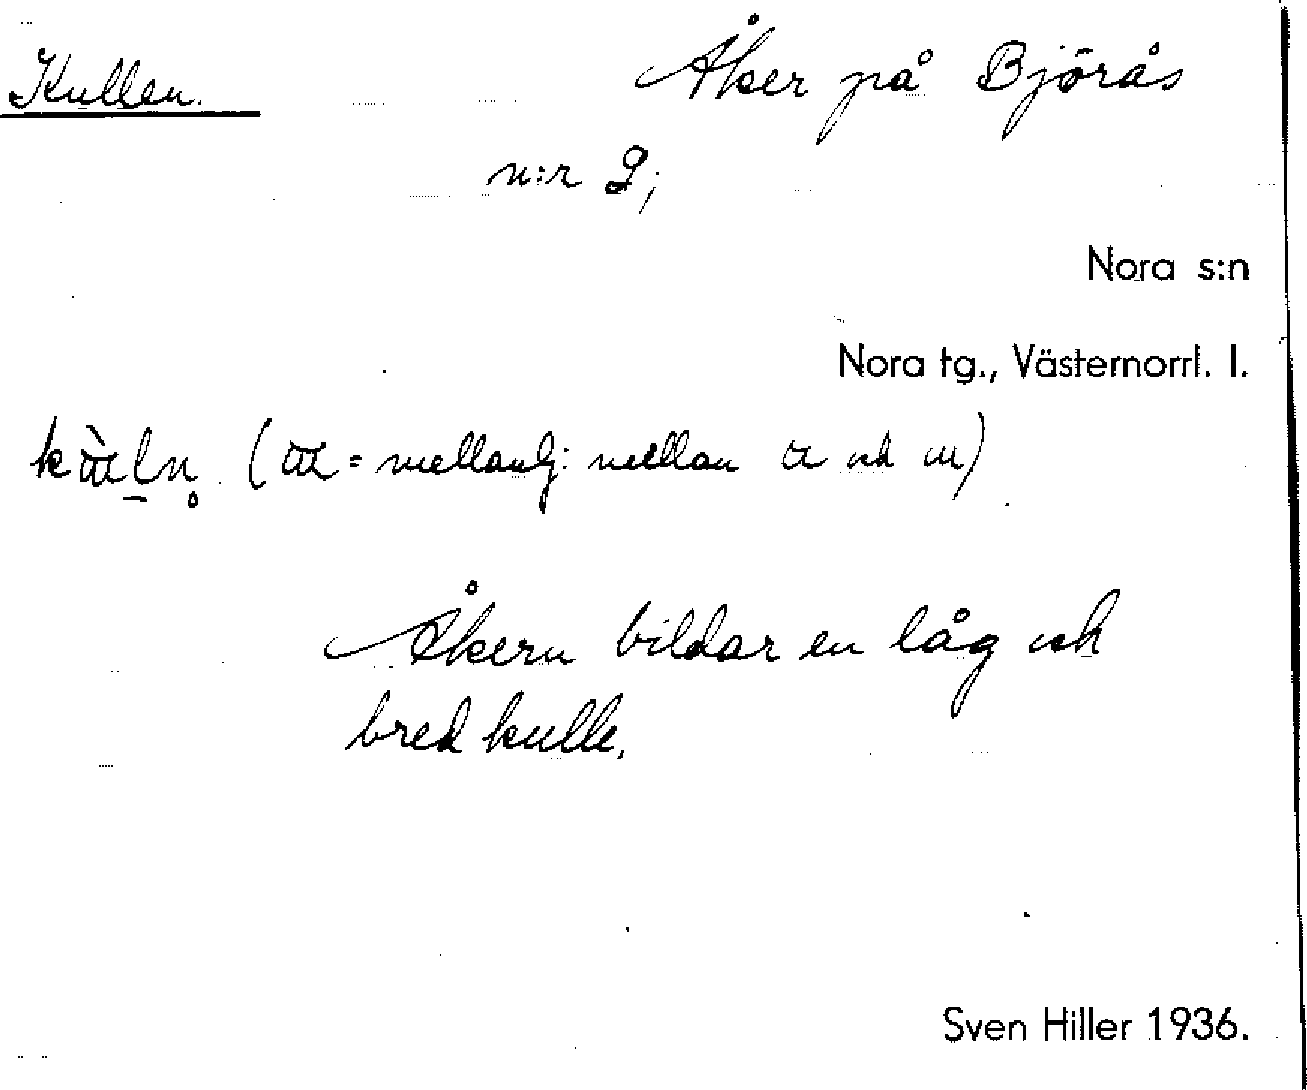 Kullen.
Åker på Björås
n:r 2;
Nora s:n
Nora tg., Västernorrl. l.
= mellanlj: mellan och
Åkern bildar en låg och
bred kulle.
Sven Hiller 1936.